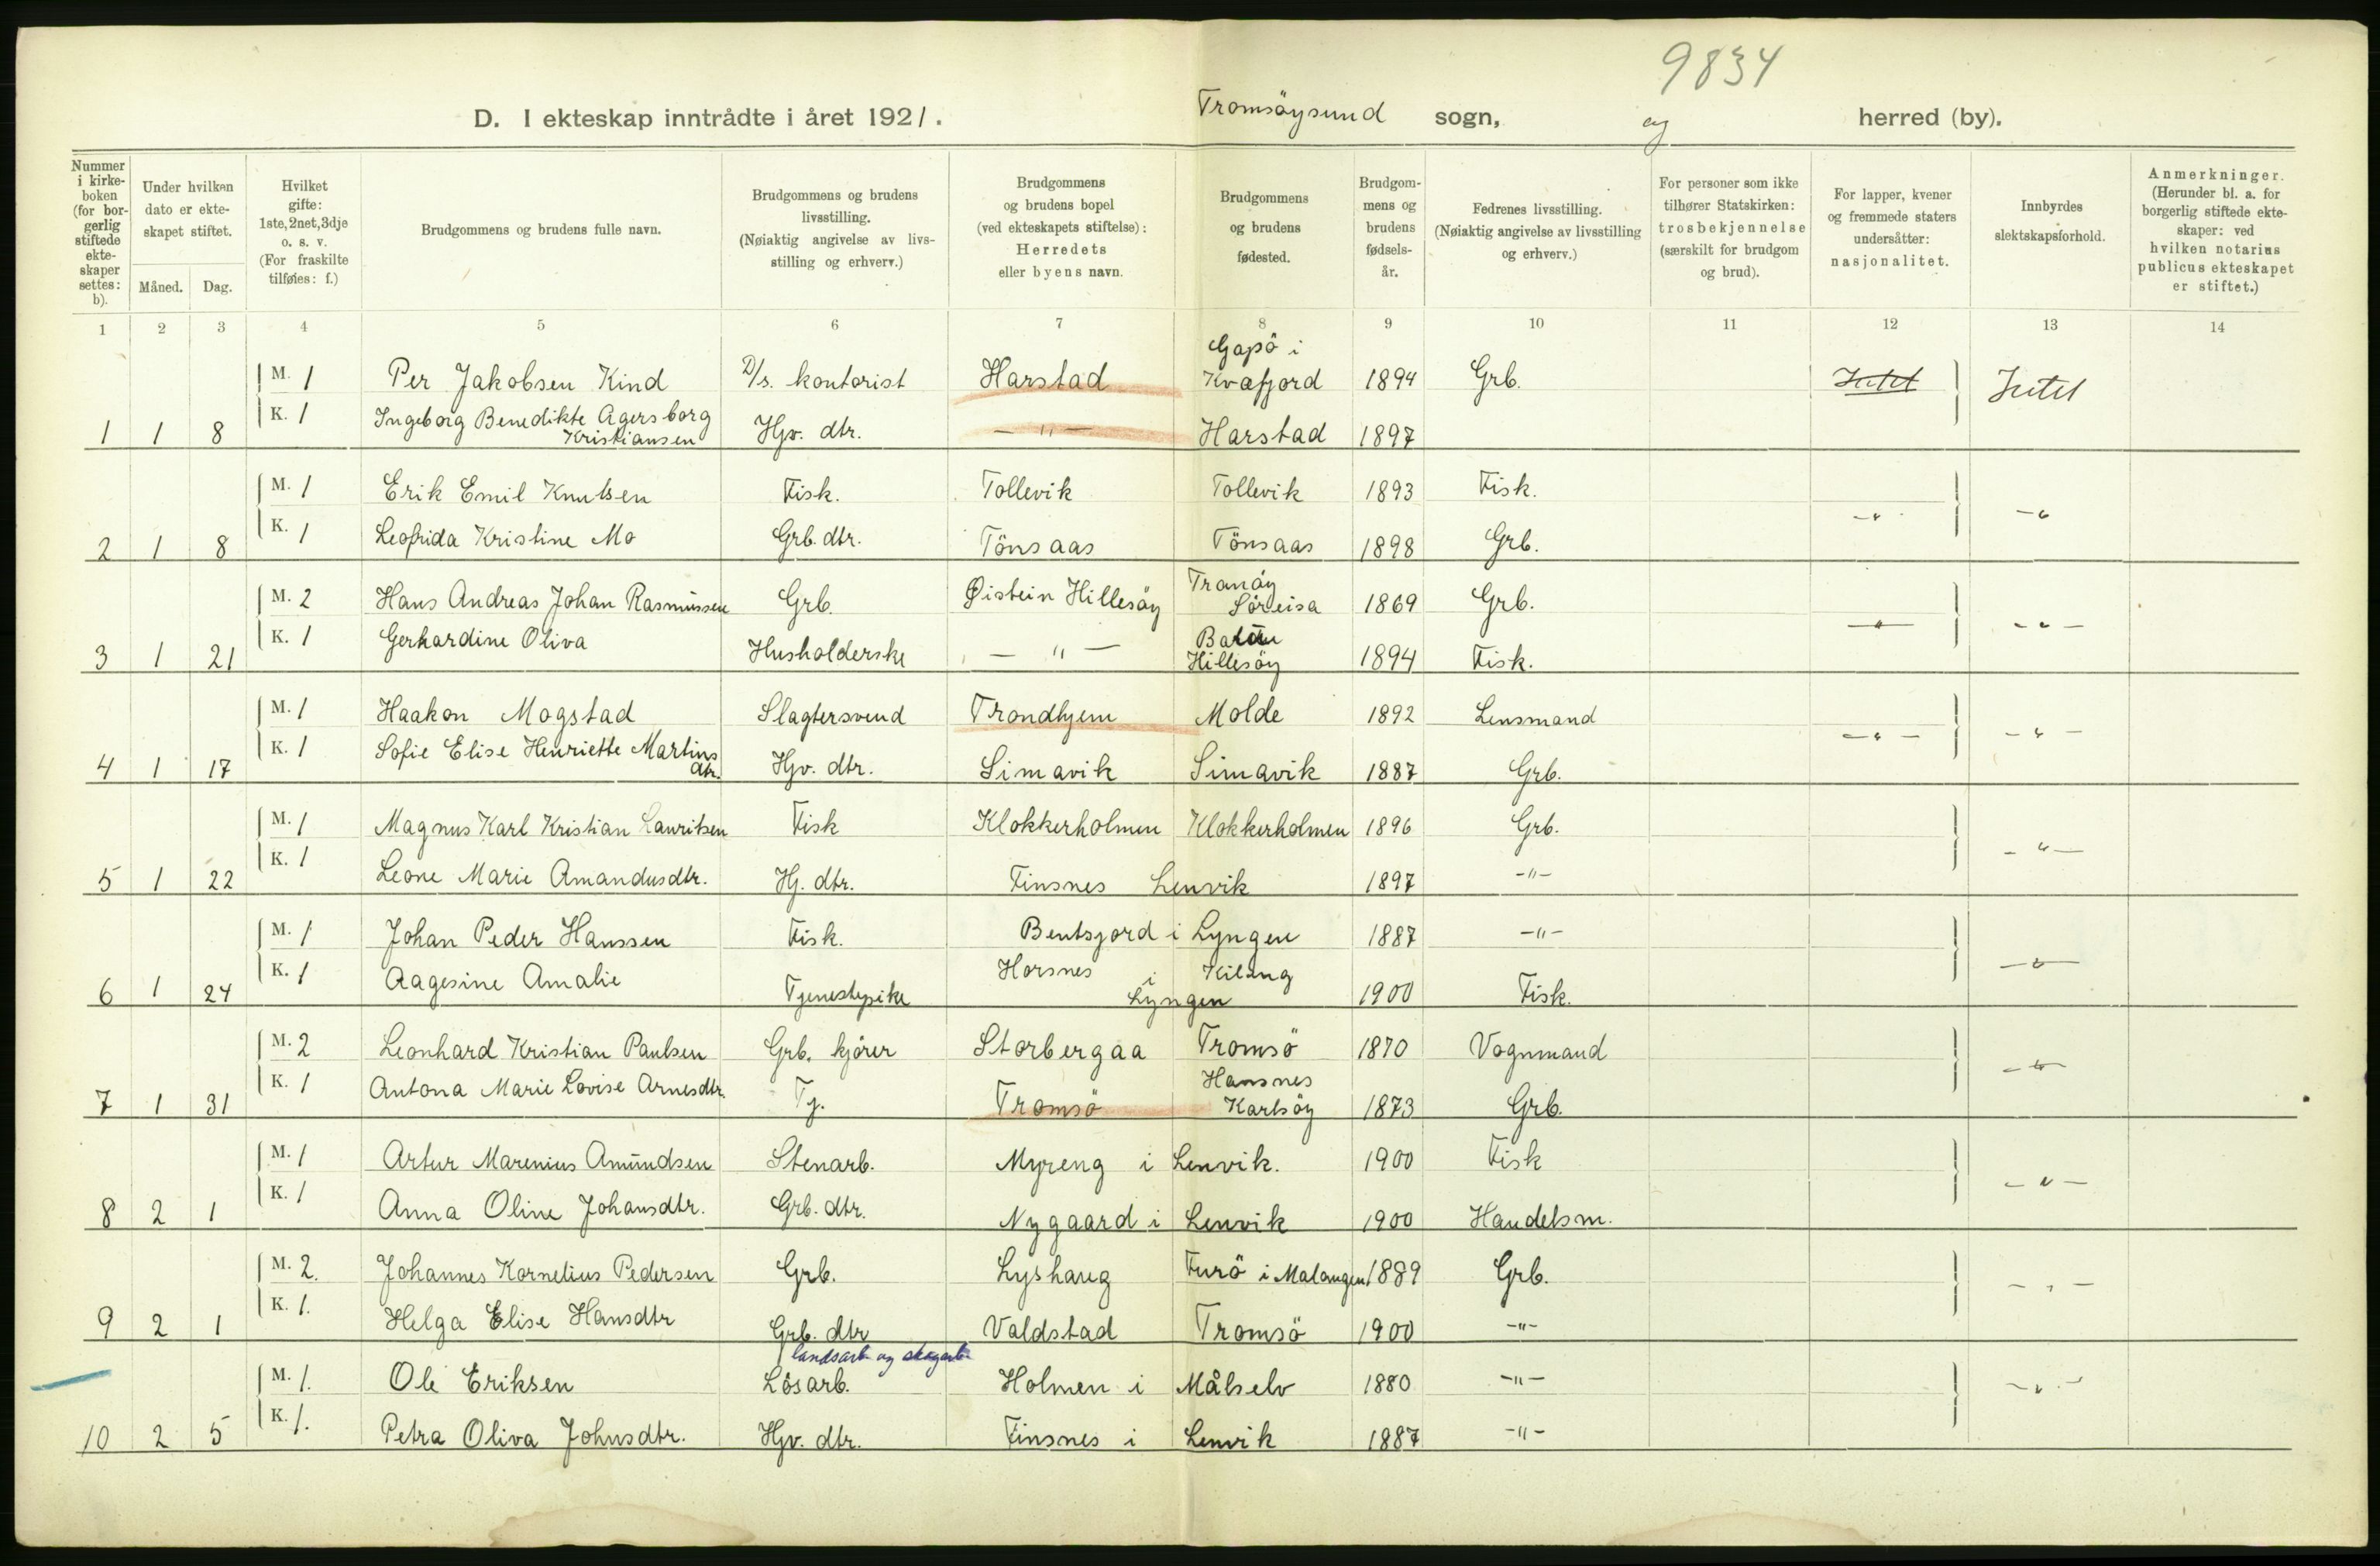 9834
D. I ekteskap inntrådte i året 1921. Tromsöysund sogn, og herred (by).
Nummer i kirke-boken (for bor-gerlig stiftede ekte-skaper settes: b).
Under hvilken dato er ekte-skapet stiftet.
Måned. Dag.
Hvilket gifte: 1ste, 2net, 3dje o. s. v. (For fraskilte tilføies: f.)
Brudgommens og brudens fulle navn.
Brudgommens og brudens livsstilling. (Nøiaktig angivelse av livs-stilling og erhverv.)
Brudgommens og brudens bopel (ved ekteskapets stiftelse): Herredets eller byens navn.
Brudgommens og brudens fødested.
Brudgom-mens og brudens fødsels-år.
Fedrenes livsstilling. (Nøiaktig angivelse av livsstilling og erhverv.)
For personer som ikke tilhører Statskirken: trosbekjennelse (særskilt for brudgom og brud).
For lapper, kvener og fremmede staters undersåtter: nasjonalitet.
Innbyrdes slektskapsforhold.
Anmerkninger. (Herunder bl. a. for borgerlig stiftede ekte-skaper: ved hvilken notarius publicus ekteskapet er stiftet.)
1 2 3 4 5 6 7 8 9 10 11 12 13 14
M. 1 Per Jakobsen Kind D/s. kontorist Harstad Gapö i Kvæfjord 1894 Grb. Intet Intet
1 1 8 K. 1 Ingeborg Benedikte Agersborg Kristiansen Hjv. dtr. — " — Harstad 1897
M. 1 Erik Emil Knutsen Fisk. Tollevik Tollevik 1893 Fisk. -"- -"
2 1 8 K. 1 Leofrida Kristine Mo Grb. dtr. Tönsaas Tönsaas 1898 Grb.
M. 2 Hans Andreas Johan Rasmussen Grb. Øistein Hillesöy Tranöy Söreisa 1869 Grb. -"- -"-
3 1 21 K. 1 Gerhardine Oliva Husholderske — " — Hillesöy 1894 Fisk.
M. 1 Haakon Mogstad Slagtersvend Trondhjem Molde 1892 Lensmand -"- -"-
4 1 17 K. 1 Sofie Elise Henriette Martins dtr. Hjv. dtr. Simavik Simavik 1887 Grb.
M. 1 Magnus Karl Kristian Lauritsen Fisk Klokkerholmen Klokkerholmen 1896 Grb. -"-
5 1 22 K. 1 Leone Marie Amandusdtr. Hj. dtr. Finsnes Lenvik 1897 -"-
M. 1 Johan Peder Hanssen Fisk. Bentsjord i Lyngen 1887 -"- -"-
6 1 24 K. 1 Aagesine Amalie Tjenestepike Horsnes i Kilang Lyngen 1900 Fisk.
M. 2 Leonhard Kristian Paulsen Grb. kjörer Storbergaa Tromsö 1870 Vognmand -"-
7 1 31 K. 1 Antona Marie Lovise Arnesdtr. Tj. Tromsö Hansnes Karlsöy 1873 Grb.
M. 1 Artur Marenius Amundsen Stenarb. Myreng i Lenvik. 1900 Fisk -"-
8 2 1 K. 1 Anna Oline Johansdtr. Grb. dtr. Nygaard i Lenvik 1900 Handelsm.
M. 2. Johannes Kornelius Pedersen Grb. Lyshaug Furö i Malangen 1889 Grb. -"-
9 2 1 K. 1. Helga Elise Hansdtr Grb. dtr Valdstad Tromsö 1900 -"-
landsarb og skogarb
M. 1. Ole Eriksen Lösarb. Holmen i Målselv 1880 -"- -"-
10 2 5 K. 1. Petra Oliva Johnsdtr. Hjv. dtr. Finsnes i Lenvik 1887 -"-